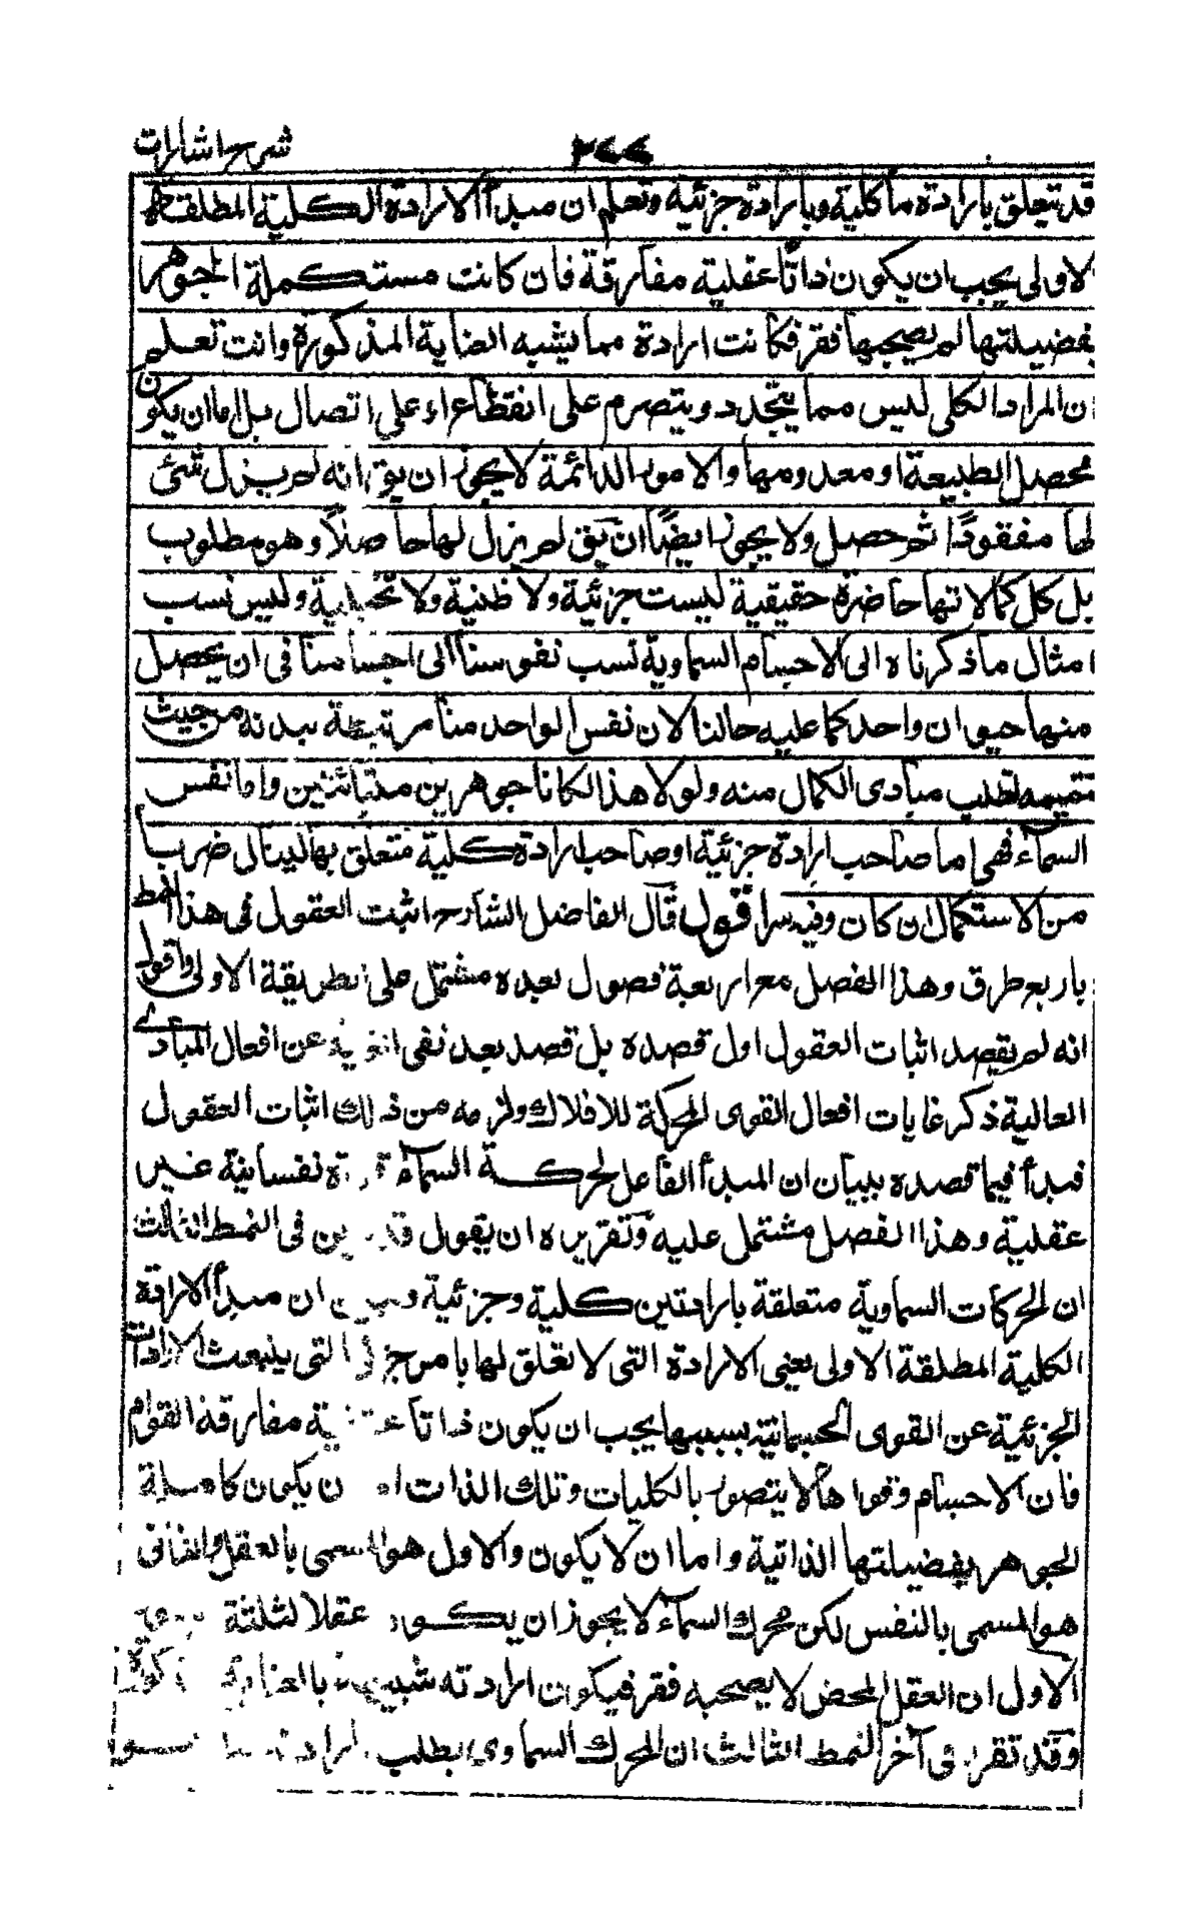 شرح اشارات
٢٤٤
قد تتعلق بارادة ما كلية وبارادة جزئية وتعلم ان مبدأ الارادة الكلية المطلقة
لاولى يجب ان يكون ذاتا عقلية مفارقة فان كانت مستكملة الجوهر
بفضيلتها لم يصحبها فقر فكانت ارادة مما يشبه العناية المذكورة وانت تعلم
ان المراد الكلى ليس مما يتجدد ويتصرم على انقطاع او على اتصال بل اما ان يكون
محصل الطبيعة او معدومها والامور الدائمة لا يجوز ان يق انه لم يزل شئ
لها مفقودًا ثم حصل ولا يجوز ايضًا ان يق لم يزل لها حاصلاً وهو مطلوب
بل كل كمالاتها حاضرة حقيقية ليست جزئية ولا ظنية ولا تخيلية وليس نسب
امثال ما ذكرناه الى الاجسام السماوية نسب نفوسنا الى اجسامنا فى ان يحصل
منها حيوان واحد كما عليه حالنا لان نفس الواحد منا مرتبطة ببدنه من حيث
تتميمه لطلب مبادى الكمال منه ولولا هذا لكانا جوهرين متباينين واما نفس
السماء فهى اما صاحب ارادة جزئية او صاحب ارادة كلية متعلق بها لينال ضربا
من الاستكمال ان كان وفيه سر اقول قال الفاضل الشارح اثبت العقول فى هذا النمط
باربع طرق وهذا الفصل مع اربعة فصول بعده مشتمل على الطريقة الاولى واقول
انه لم يقصد اثبات العقول اول قصده بل قصد بعد نفى عن افعال المبادى
العالية ذكر غايات افعال القوى المحركة للافلاك ولزمه من ذلك اثبات العقول
فبدأ فيما قصده ببيان ان المبدأ الفاعل لحركة السماء نفسانية غير
عقلية وهذا الفصل مشتمل عليه وتقريره ان يقول فى النمط الثالث
ان الحركات السماوية متعلقة بارادتين كلية وجزئية ان مبدأ الارادة
الكلية المطلقة الاولى يعنى الارادة التى لا تعلق لها بامر جزئى التى ينبعث الارادات
الجزئية عن القوى الجسمانية بسببها يجب ان يكون ذاتا مفارقة القوام
فان الاجسام وقواها لا يتصور بالكليات وتلك الذات ان يكون كاملة
الجوهر بفضيلتها الذاتية واما ان لا يكون والاول هو المسمى بالعقل والثانى
هو المسمى بالنفس لكن محرك السماء لا يجوز ان يكون عقلا لثلثة
الاول ان العقل المحض لا يصحبه فقر فيكون ارادته شبيهة بالعناية
وقد تقرر فى آخر النمط الثالث ان المحرك السماوى يطلب